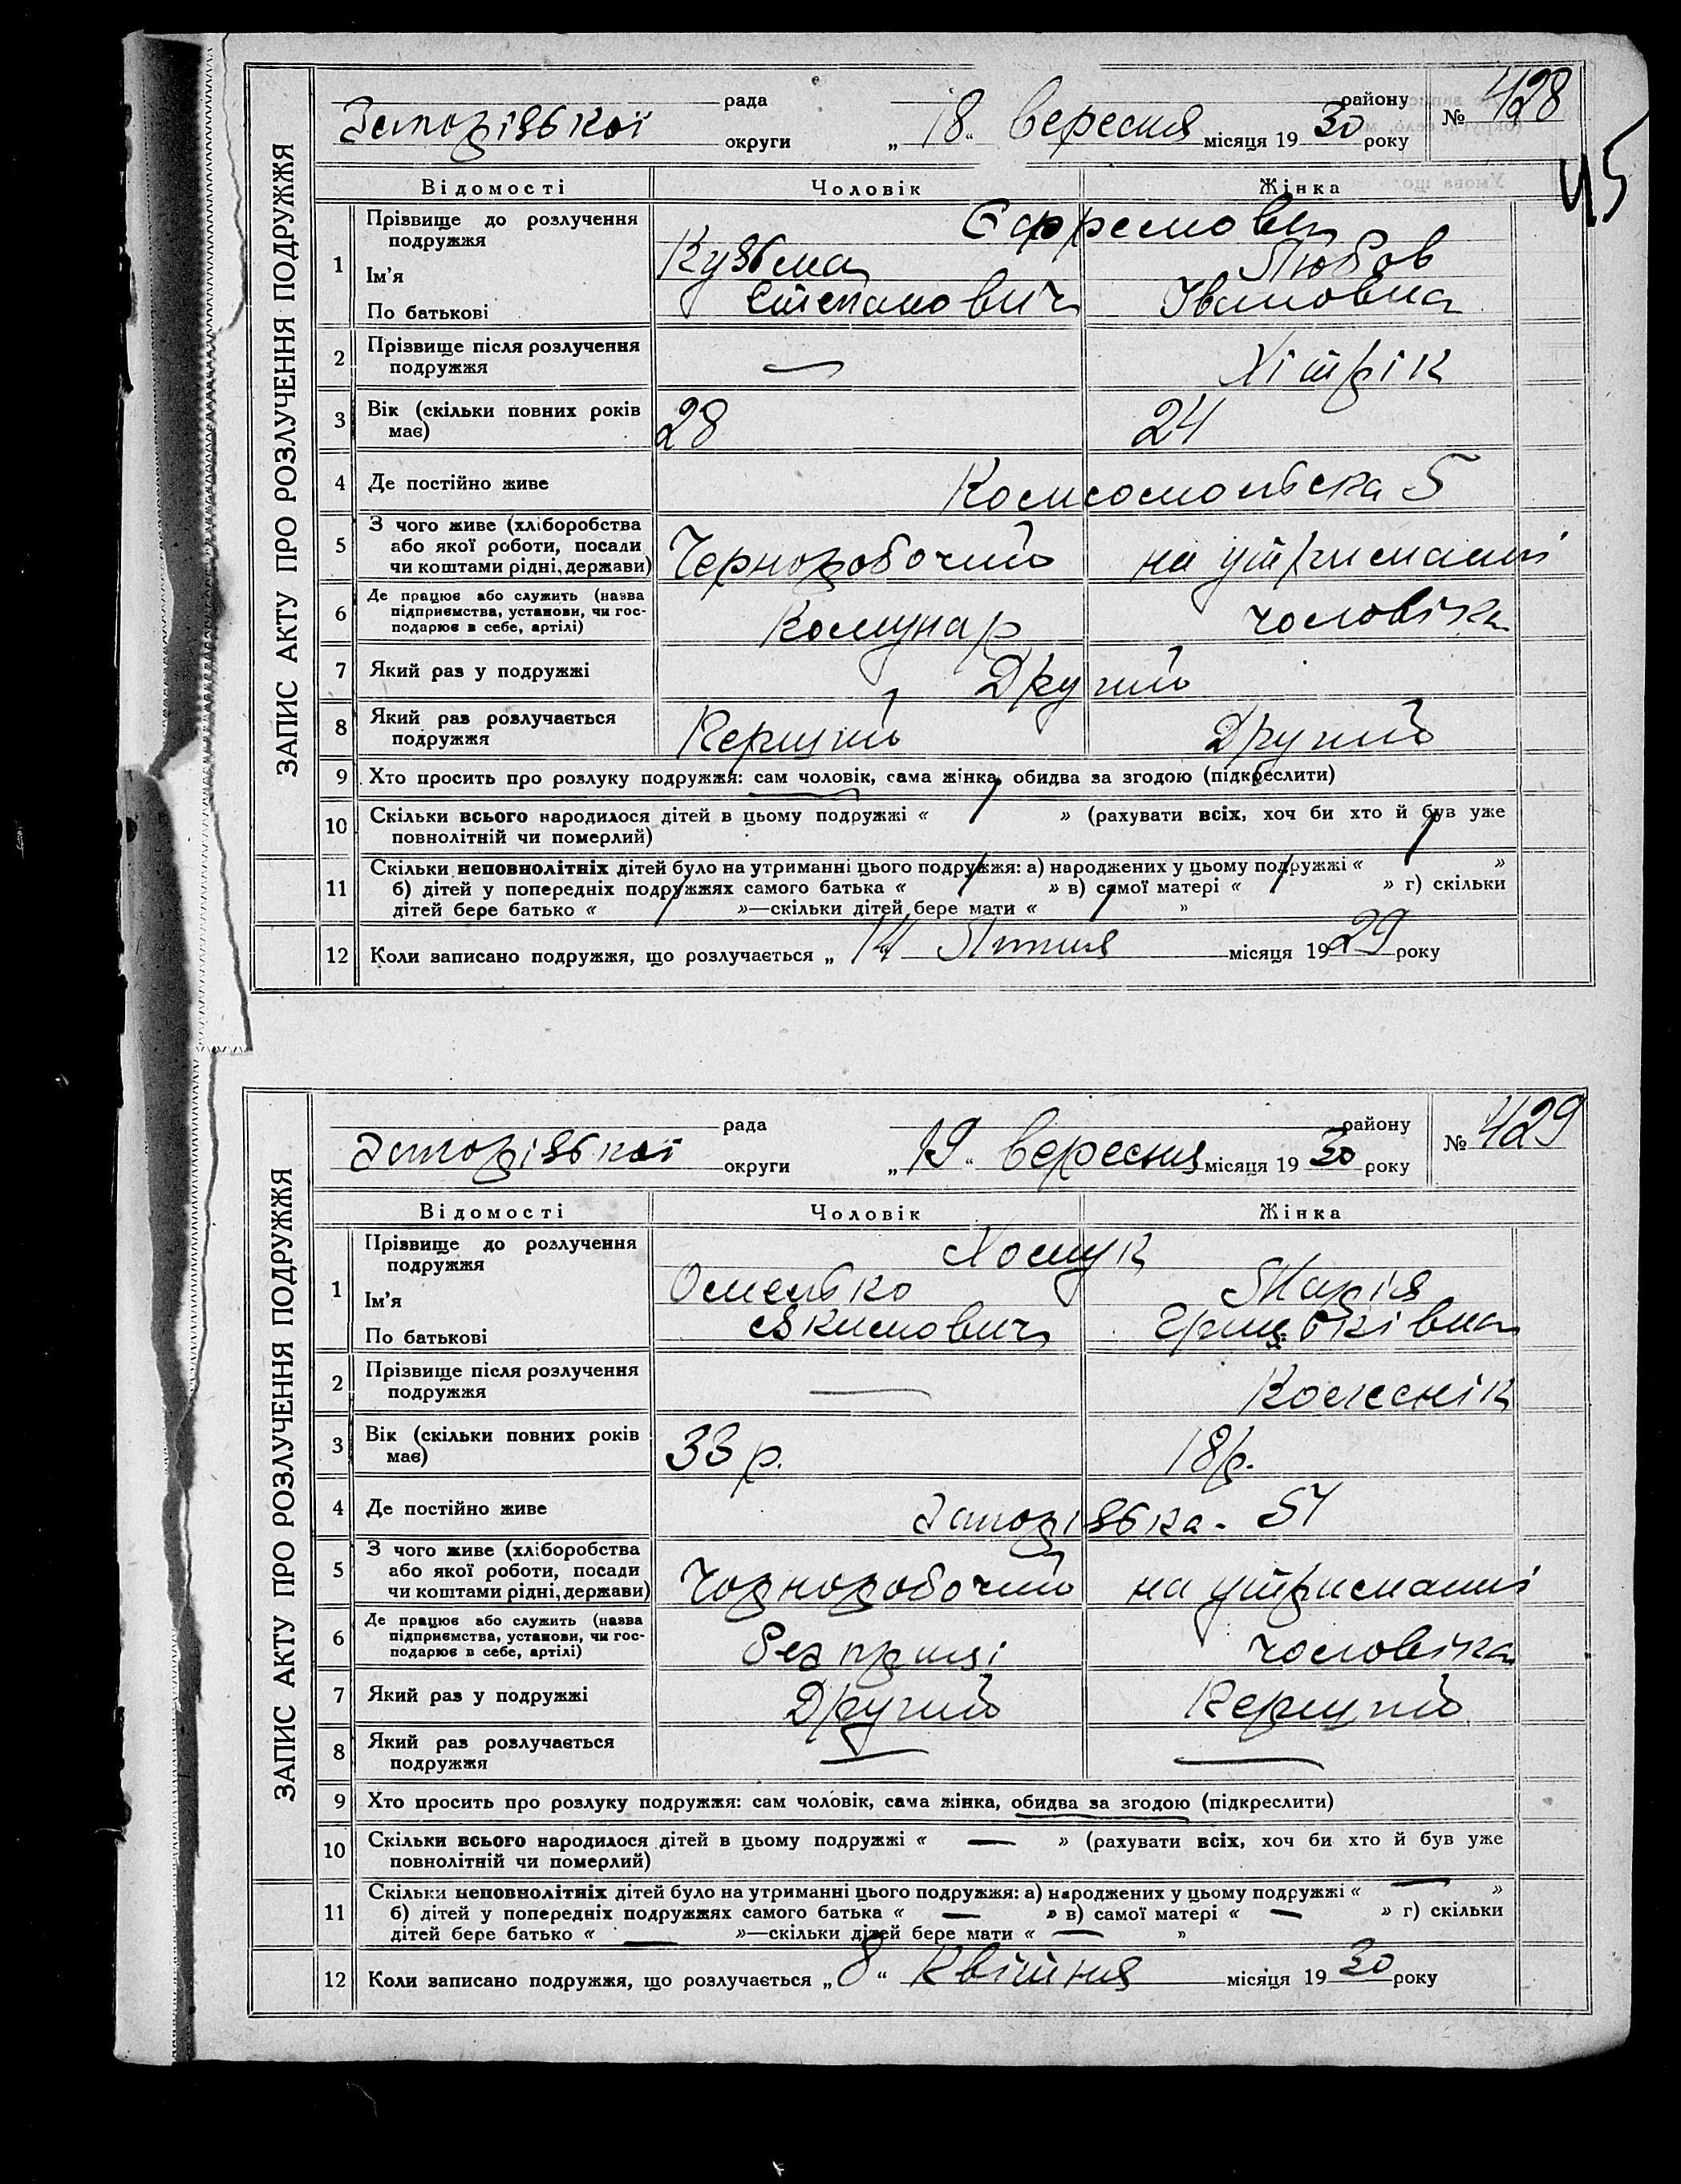 ЗАПИС АКТУ ПРО РОЗЛУЧЕННЯ ПОДРУЖЖЯ
рада району № 428
Запорізької округи „18“ вересня місяця 1930 року
45
Відомості Чоловік Жінка
1 Прізвище до розлучення подружжя Єфремови
Ім'я Кузьма Любов
По батькові Степанович Івановна
2 Прізвище після розлучення подружжя — Хітрік
3 Вік (скільки повних років має) 28 24
4 Де постійно живе Комсомольська 5
5 З чого живе (хліборобства або якої роботи, посади чи коштами рідні, держави) Черноробочий на утриманні
6 Де працює або служить (назва підприємства, установи, чи господарює в себе, артілі) Комунар чоловіка
7 Який раз у подружжі Другий
8 Який раз розлучається подружжя Перший Другий
9 Хто просить про розлуку подружжя: сам чоловік, сама жінка, обидва за згодою (підкреслити)
10 Скільки всього народилося дітей в цьому подружжі « » (рахувати всіх, хоч би хто й був уже
повнолітній чи померлий)
11 Скільки неповнолітніх дітей було на утриманні цього подружжя: а) народжених у цьому подружжі « »
б) дітей у попередніх подружжях самого батька « » в) самої матері « » г) скільки
дітей бере батько « »—скільки дітей бере мати « »
12 Коли записано подружжя, що розлучається „14“ Липня місяця 1929 року
ЗАПИС АКТУ ПРО РОЗЛУЧЕННЯ ПОДРУЖЖЯ
рада району № 429
Запорізької округи „19“ вересня місяця 1930 року
Відомості Чоловік Жінка
1 Прізвище до розлучення подружжя Хомук
Ім'я Омелько Марія
По батькові Якимович Грицьківна
2 Прізвище після розлучення подружжя — Колеснік
3 Вік (скільки повних років має) 33 р. 18 р.
4 Де постійно живе Запорізька - 54
5 З чого живе (хліборобства або якої роботи, посади чи коштами рідні, держави) Чорноробочий на утриманні
6 Де працює або служить (назва підприємства, установи, чи господарює в себе, артілі) Без праці чоловіка
7 Який раз у подружжі Другий Перший
8 Який раз розлучається подружжя — —
9 Хто просить про розлуку подружжя: сам чоловік, сама жінка, обидва за згодою (підкреслити)
10 Скільки всього народилося дітей в цьому подружжі « — » (рахувати всіх, хоч би хто й був уже
повнолітній чи померлий)
11 Скільки неповнолітніх дітей було на утриманні цього подружжя: а) народжених у цьому подружжі « — »
б) дітей у попередніх подружжях самого батька « — » в) самої матері « — » г) скільки
дітей бере батько « — »—скільки дітей бере мати « — »
12 Коли записано подружжя, що розлучається „8“ Квітня місяця 1930 року